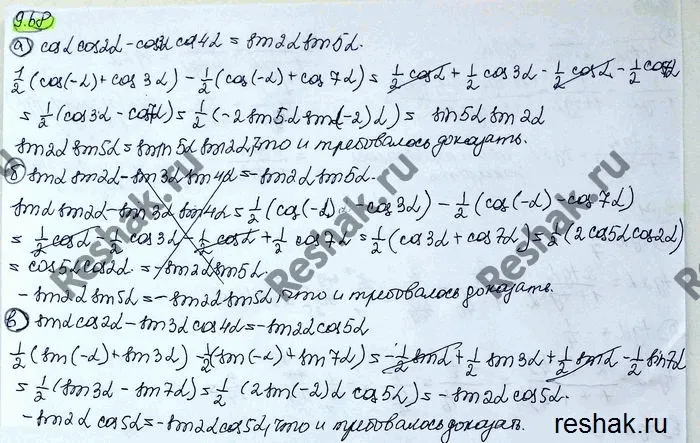 9.68
а) cosα cos2α - cos3α cos4α = sin2α sin5α.
1/2 (cos(-α) + cos 3α) - 1/2 (cos(-α) + cos 7α) = 1/2 cosα + 1/2 cos 3α - 1/2 cosα - 1/2 cos7α
= 1/2 (cos3α - cos7α) = 1/2 (-2 sin5α sin(-2)α) = sin5α sin2α
sin2α sin5α = sin5α sin2α, что и требовалось доказать.
б) sinα sin2α - sin3α sin4α = -sin2α sin5α.
sinα sin2α - sin3α sin4α = 1/2 (cos(-α) - cos3α) - 1/2 (cos(-α) - cos7α)
= 1/2 cosα - 1/2 cos3α - 1/2 cosα + 1/2 cos7α = 1/2 (cos3α + cos7α) = 1/2 (2cos5α cos2α)
= cos5α cos2α = -sin2α sin5α.
-sin2α sin5α = -sin2α sin5α, что и требовалось доказать.
в) sinα cos2α - sin3α cos4α = -sin2α cos5α
1/2 (sin(-α) + sin3α) - 1/2 (sin(-α) + sin7α) = -1/2 sinα + 1/2 sin3α + 1/2 sinα - 1/2 sin7α
= 1/2 (sin3α - sin7α) = 1/2 (2sin(-2)α cos5α) = -sin2α cos5α.
-sin2α cos5α = -sin2α cos5α, что и требовалось доказат.
Reshak.ru
Reshak.ru
Reshak.ru
reshak.ru